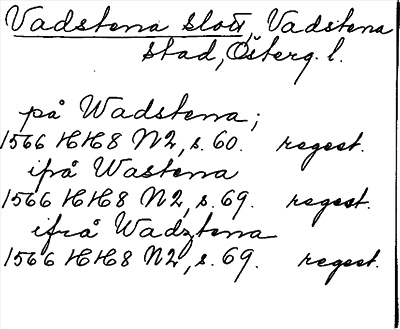 Vadstena slott, Vadstena
stad, Österg. l.
på Wadstena;
1566 HH8 N2, s. 60. regest.
ifrå Wastena
1566 HH8 N2, s. 69. regest.
ifrå Wadztena
1566 HH8 N2, s. 69. regest.